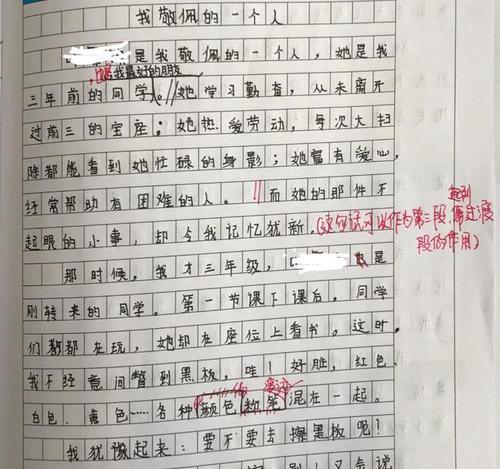 我敬佩的一个人
是我敬佩的一个人，她是我
也是我最好的朋友
三年前的同学。她学习勤奋，从未离开
过前三的宝座；她热爱劳动，每次大扫
除都能看到她忙碌的身影；她富有爱心，
经常帮助有困难的人。而她的那件不
起眼的小事，却令我记忆犹新。(这句话可以作为第三段，起到过渡段的作用)
那时候，我才三年级，也是
刚转来的同学。第一节课下课后。同学
们都在玩，她却在座位上看书。这时，
我不经意间瞥到黑板，哇！好脏，红色、
白色、黄色……各种颜色粉笔混在一起。
我犹豫起来：要不要去擦黑板呢！